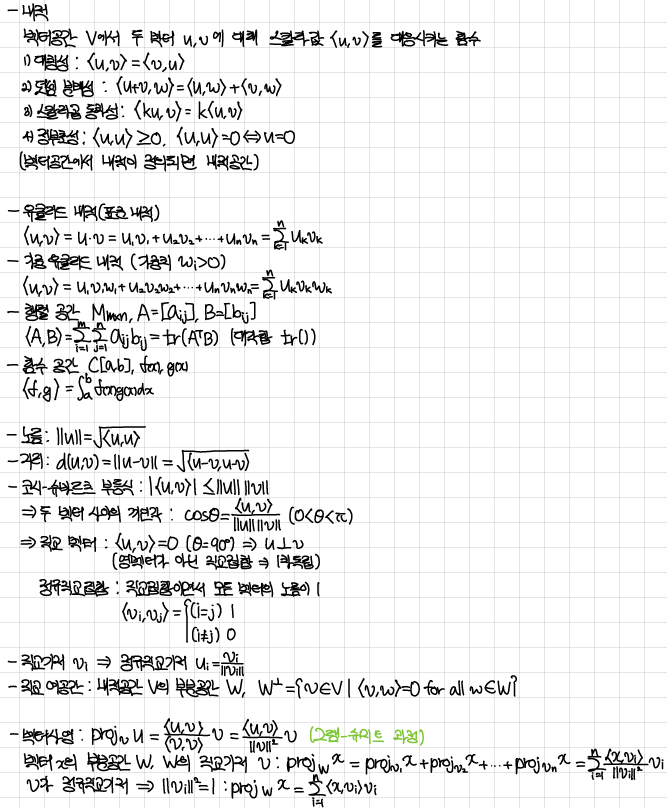 - 내적
벡터공간 V에서 두 벡터 u, v에 대해 스칼라값 ⟨u,v⟩를 대응시키는 함수
1) 대칭성 : ⟨u,v⟩=⟨v,u⟩
2) 덧셈 분배성 : ⟨u+v,w⟩=⟨u,w⟩+⟨v,w⟩
3) 스칼라곱 동차성 : ⟨ku,v⟩=k⟨u,v⟩
4) 정부호성 : ⟨u,u⟩≥0, ⟨u,u⟩=0⇔u=0
(벡터공간에서 내적이 정의되면 내적공간)
- 유클리드 내적(표준 내적)
⟨u,v⟩=u·v=u₁v₁+u₂v₂+⋯+uₙvₙ=∑ⁿₖ₌₁uₖvₖ
- 가중 유클리드 내적 (가중치 wᵢ>0)
⟨u,v⟩=u₁v₁w₁+u₂v₂w₂+⋯+uₙvₙwₙ=∑ⁿₖ₌₁uₖvₖwₖ
- 행렬 공간 Mₘₓₙ, A=[aᵢⱼ], B=[bᵢⱼ]
⟨A,B⟩=∑ᵐᵢ₌₁∑ⁿⱼ₌₁aᵢⱼbᵢⱼ=tr(AᵀB) (대각합 tr())
- 함수 공간 C[a,b], f(x), g(x)
⟨f,g⟩=∫ₐᵇf(x)g(x)dx
- 노름 : ||u||=√⟨u,u⟩
- 거리 : d(u,v)=||u-v||=√⟨u-v,u-v⟩
- 코시-슈바르츠 부등식 : |⟨u,v⟩|≤||u|| ||v||
⇒ 두 벡터 사이의 끼인각 : cosθ=⟨u,v⟩/||u|| ||v|| (0<θ<π)
⇒ 직교 벡터 : ⟨u,v⟩=0 (θ=90°) ⇒ u⊥v
(영벡터가 아닌 직교집합 ⇒ 1차독립)
정규직교집합 : 직교집합이면서 모든 벡터의 노름이 1
⟨vᵢ,vⱼ⟩={(i=j) 1
(i≠j) 0
- 직교기저 vᵢ ⇒ 정규직교기저 uᵢ=vᵢ/||vᵢ||
- 직교 여공간 : 내적공간 V의 부분공간 W, W^⊥={v∈V | ⟨v,w⟩=0 for all w∈W}
- 벡터사영 : projᵥu=⟨u,v⟩/⟨v,v⟩ v=⟨u,v⟩/||v||² v (그람-슈미트 과정)
벡터 x의 부분공간 W, W의 직교기저 v : proj_W x=proj_v₁ x+proj_v₂ x+⋯+proj_vₙ x=∑ⁿᵢ₌₁⟨x,vᵢ⟩/||vᵢ||² vᵢ
v가 정규직교기저 ⇒ ||vᵢ||²=1 : proj_W x=∑ⁿᵢ₌₁⟨x,vᵢ⟩vᵢ